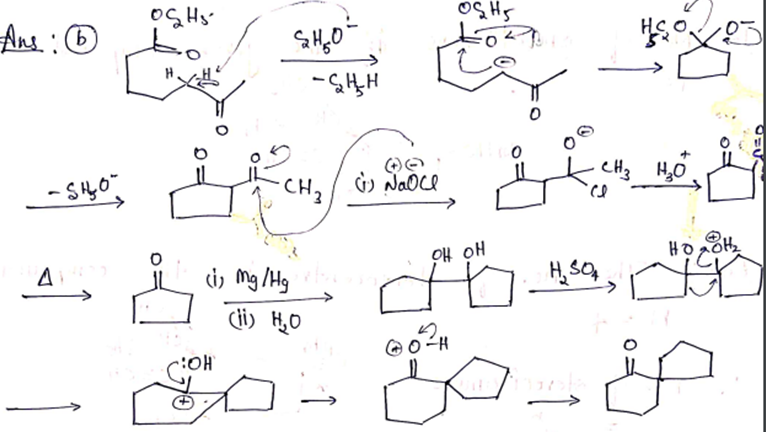 Ans: (b) OC2H5 O H H O C2H5O⁻ −C2H5H OC2H5 O ⊖ O H5C2O O⁻
−C2H5O⁻ O O CH3 (i) NaOCl ⊕ ⊖ O O ⊖ CH3 Cl H3O⁺ O O
Δ O (i) Mg/Hg (ii) H2O OH OH H2SO4 HO ⊕ OH2
:OH ⊕ ⊕ O−H O